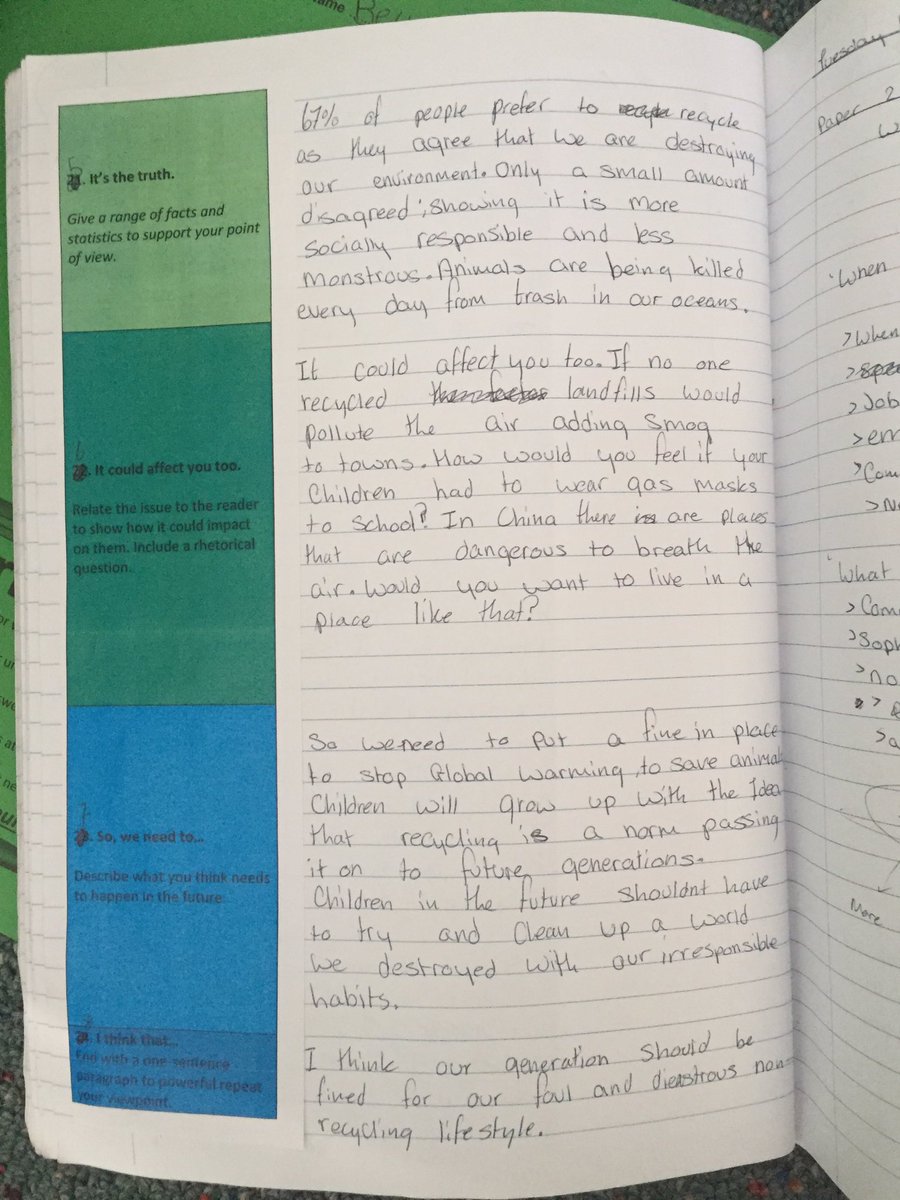 ame Be
5. It's the truth.
Give a range of facts and
statistics to support your point
of view.
67% of people prefer to recycle
as they agree that we are destroying
our environment. Only a small amount
disagreed ; showing it is more
socially responsible and less
monstrous. Animals are being killed
every day from trash in our oceans.
6
. It could affect you too.
Relate the issue to the reader
to show how it could impact
on them. Include a rhetorical
question.
It could affect you too. If no one
recycled landfills would
pollute the air adding smog
to towns. How would you feel if your
Children had to wear gas masks
to school? In China there are places
that are dangerous to breath the
air. Would you want to live in a
place like that?
7
. So, we need to...
Describe what you think needs
to happen in the future.
So we need to put a fine in place
to stop Global warming, to save animal
Children will grow up with the Idea
that recycling is a norm passing
it on to future generations.
Children in the future shouldnt have
to try and Clean up a world
we destroyed with our irresponsible
habits.
8
. I think that...
End with a one sentence
paragraph to powerful repeat
your viewpoint.
I think our generation should be
fined for our foul and disastrous non
recycling lifestyle.
Tuesday
Paper 2
W
'When
> When
> Job
> em
> Com
> No
'What
> Com
> Soph
> no
> a
More